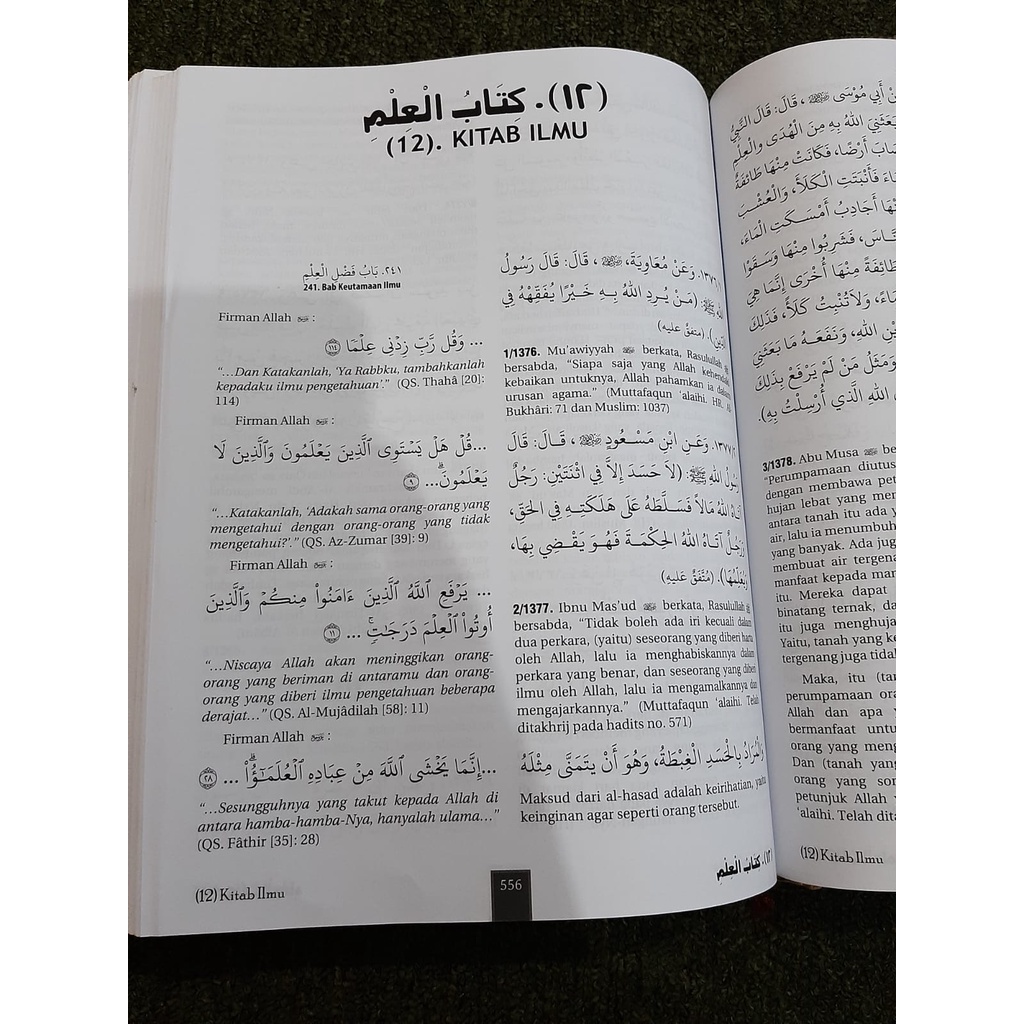 (١٢). كِتَابُ الْعِلْمِ
(12). KITAB ILMU
٢٤١. بَابُ فَضْلِ الْعِلْمِ
241. Bab Keutamaan Ilmu
Firman Allah :
... وَقُل رَّبِّ زِدْنِي عِلْمًا ١١٤
“...Dan Katakanlah, ‘Ya Rabbku, tambahkanlah
kepadaku ilmu pengetahuan’.” (QS. Thahâ [20]:
114)
Firman Allah :
...قُلْ هَلْ يَسْتَوِي ٱلَّذِينَ يَعْلَمُونَ وَٱلَّذِينَ لَا
يَعْلَمُونَ ۗ... ٩
“...Katakanlah, ‘Adakah sama orang-orang yang
mengetahui dengan orang-orang yang tidak
mengetahui?’.” (QS. Az-Zumar [39]: 9)
Firman Allah :
... يَرْفَعِ ٱللَّهُ ٱلَّذِينَ ءَامَنُوا۟ مِنكُمْ وَٱلَّذِينَ
أُوتُوا۟ ٱلْعِلْمَ دَرَجَـٰتٍ ۚ ... ١١
“...Niscaya Allah akan meninggikan orang-
orang yang beriman di antaramu dan orang-
orang yang diberi ilmu pengetahuan beberapa
derajat...” (QS. Al-Mujâdilah [58]: 11)
Firman Allah :
...إِنَّمَا يَخْشَى ٱللَّهَ مِنْ عِبَادِهِ ٱلْعُلَمَـٰٓؤُا۟ ۗ ... ٢٨
“...Sesungguhnya yang takut kepada Allah di
antara hamba-hamba-Nya, hanyalah ulama...”
(QS. Fâthir [35]: 28)
١٣٧٦/١. وَعَنْ مُعَاوِيَةَ، ، قَالَ: قَالَ رَسُولُ
اللهِ ﷺ: (مَنْ يُرِدِ اللهُ بِهِ خَيْرًا يُفَقِّهْهُ فِي
الدِّينِ). (متفقٌ عليه)
1/1376. Mu’awiyyah berkata, Rasulullah
bersabda, “Siapa saja yang Allah kehendaki
kebaikan untuknya, Allah pahamkan ia dalam
urusan agama.” (Muttafaqun ‘alaihi. HR. Al-
Bukhâri: 71 dan Muslim: 1037)
١٣٧٧/٢. وَعَنِ ابْنِ مَسْعُودٍ ، قَالَ: قَالَ
رَسُولُ اللهِ ﷺ: (لاَ حَسَدَ إِلاَّ فِي اثْنَتَيْنِ: رَجُلٌ
آتَاهُ اللهُ مَالاً فَسَلَّطَهُ عَلَى هَلَكَتِهِ فِي الْحَقِّ،
وَرَجُلٌ آتَاهُ اللهُ الْحِكْمَةَ فَهُوَ يَقْضِي بِهَا،
وَيُعَلِّمُهَا). (مُتَّفَقٌ عَلَيهِ)
2/1377. Ibnu Mas’ud berkata, Rasulullah
bersabda, “Tidak boleh ada iri kecuali dalam
dua perkara, (yaitu) seseorang yang diberi harta
oleh Allah, lalu ia menghabiskannya dalam
perkara yang benar, dan seseorang yang diberi
ilmu oleh Allah, lalu ia mengamalkannya dan
mengajarkannya.” (Muttafaqun ‘alaihi. Telah
ditakhrij pada hadits no. 571)
وَالْمُرَادُ بِالْحَسَدِ الْغِبْطَةُ، وَهُوَ أَنْ يَتَمَنَّى مِثْلَهُ
Maksud dari al-hasad adalah keirihatian, yaitu
keinginan agar seperti orang tersebut.
(12) Kitab Ilmu
556
(١٢). كِتَابُ الْعِلْمِ
أَبِي مُوسَى ، قَالَ: قَالَ النَّبِيُّ
بَعَثَنِيَ اللهُ بِهِ مِنَ الْهُدَى وَالْعِلْمِ
أَرْضًا، فَكَانَتْ مِنْهَا طَائِفَةٌ
فَأَنْبَتَتِ الْكَلأَ، وَالْعُشْبَ
أَجَادِبُ أَمْسَكَتِ الْمَاءَ،
فَشَرِبُوا مِنْهَا وَسَقَوْا
طَائِفَةً مِنْهَا أُخْرَى إِنَّمَا هِيَ
وَلاَ تُنْبِتُ كَلأً، فَذَلِكَ
اللهِ، وَنَفَعَهُ مَا بَعَثَنِيَ
وَمَثَلُ مَنْ لَمْ يَرْفَعْ بِذَلِكَ
اللهِ الَّذِي أُرْسِلْتُ بِهِ).
3/1378. Abu Musa be
“Perumpamaan diutus
dengan membawa pet
hujan lebat yang men
antara tanah itu ada y
air, lalu ia menumbuh
yang banyak. Ada jug
membuat air tergena
manfaat kepada man
itu. Mereka dapat
binatang ternak, da
itu juga menghuja
Yaitu, tanah yang ke
tergenang juga tidal
Maka, itu (tan
perumpamaan ora
Allah dan apa y
bermanfaat untu
orang yang meng
Dan (tanah yang
orang yang son
petunjuk Allah y
‘alaihi. Telah dita
(12) Kitab Ilmu